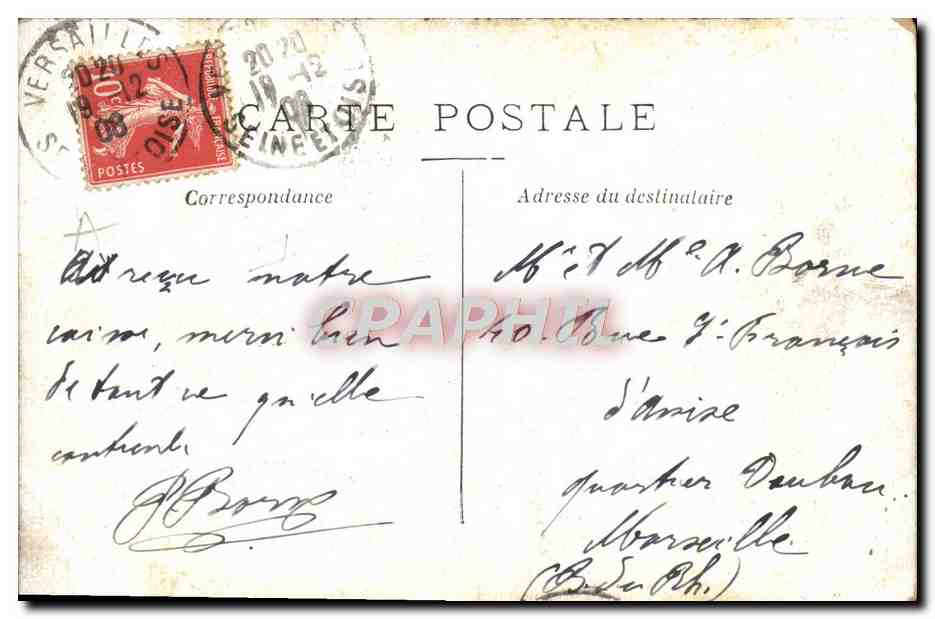 VERSAILLES
20 20
19 -12
08
OISE
20 20
19 -12
08
SEINE ET OISE
10c
REPUBLIQUE FRANÇAISE
POSTES
CARTE POSTALE
Correspondance
Adresse du destinataire
Ai reçu notre
caisse, merci bien
de tout ce qu'elle
contient.
P Borne
CPAPHIL
Mr et Me A. Borne
40. Rue St François
d'Assise
quartier
Marseille
(B. du Rh.)